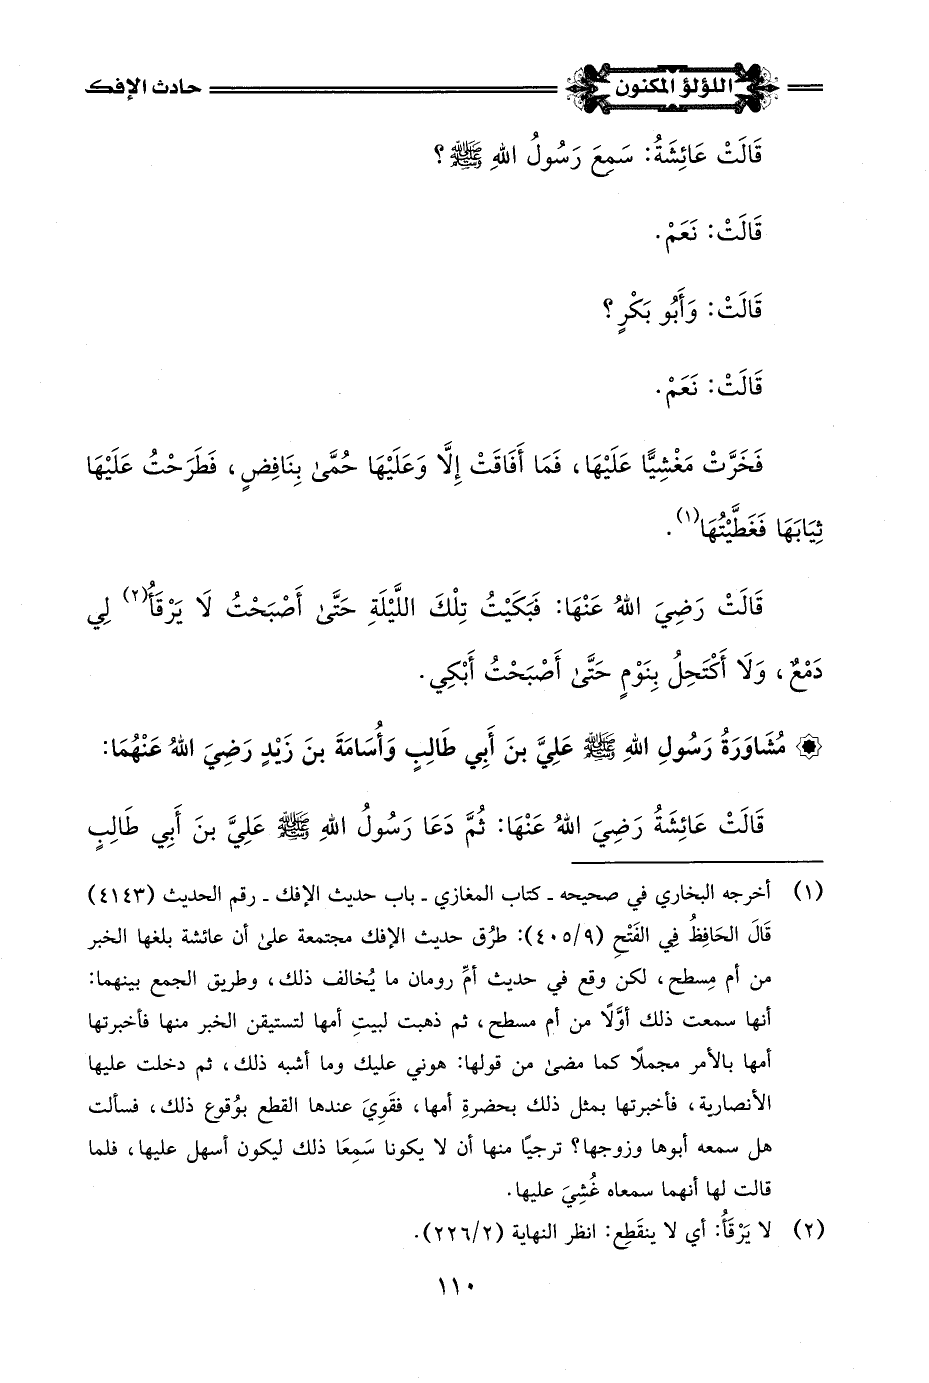 اللؤلؤ المكنون حادث الإفك
قَالَتْ عَائِشَةُ: سَمِعَ رَسُولُ اللهِ ﷺ؟
قَالَتْ: نَعَمْ.
قَالَتْ: وَأَبُو بَكْرٍ؟
قَالَتْ: نَعَمْ.
فَخَرَّتْ مَغْشِيًّا عَلَيْهَا، فَمَا أَفَاقَتْ إِلَّا وَعَلَيْهَا حُمَّىٰ بِنَافِضٍ، فَطَرَحْتُ عَلَيْهَا
ثِيَابَهَا فَغَطَّيْتُهَا(١).
قَالَتْ رَضِيَ اللهُ عَنْهَا: فَبَكَيْتُ تِلْكَ اللَّيْلَةِ حَتَّىٰ أَصْبَحْتُ لَا يَرْقَأُ(٢) لِي
دَمْعٌ، وَلَا أَكْتَحِلُ بِنَوْمٍ حَتَّىٰ أَصْبَحْتُ أَبْكِي.
۞ مُشَاوَرَةُ رَسُولِ اللهِ ﷺ عَلِيَّ بنَ أَبِي طَالِبٍ وَأُسَامَةَ بنَ زَيْدٍ رَضِيَ اللهُ عَنْهُمَا:
قَالَتْ عَائِشَةُ رَضِيَ اللهُ عَنْهَا: ثُمَّ دَعَا رَسُولُ اللهِ ﷺ عَلِيَّ بنَ أَبِي طَالِبٍ
(١) أخرجه البخاري في صحيحه ـ كتاب المغازي ـ باب حديث الإفك ـ رقم الحديث (٤١٤٣)
قَالَ الحَافِظُ فِي الفَتْحِ (٤٠٥/٩): طرُق حديث الإفك مجتمعة علىٰ أن عائشة بلغها الخبر
من أم مِسطح، لكن وقع في حديث أمِّ رومان ما يُخالف ذلك، وطريق الجمع بينهما:
أنها سمعت ذلك أوَّلًا من أم مسطح، ثم ذهبت لبيتِ أمها لتستيقن الخبر منها فأخبرتها
أمها بالأمر مجملًا كما مضىٰ من قولها: هوني عليك وما أشبه ذلك، ثم دخلت عليها
الأنصارية، فأخبرتها بمثل ذلك بحضرةِ أمها، فقَوِيَ عندها القطع بوُقوع ذلك، فسألت
هل سمعه أبوها وزوجها؟ ترجيًا منها أن لا يكونا سَمِعَا ذلك ليكون أسهل عليها، فلما
قالت لها أنهما سمعاه غُشِيَ عليها.
(٢) لا يَرْقَأُ: أي لا ينقَطِع: انظر النهاية (٢٢٦/٢).
١١٠